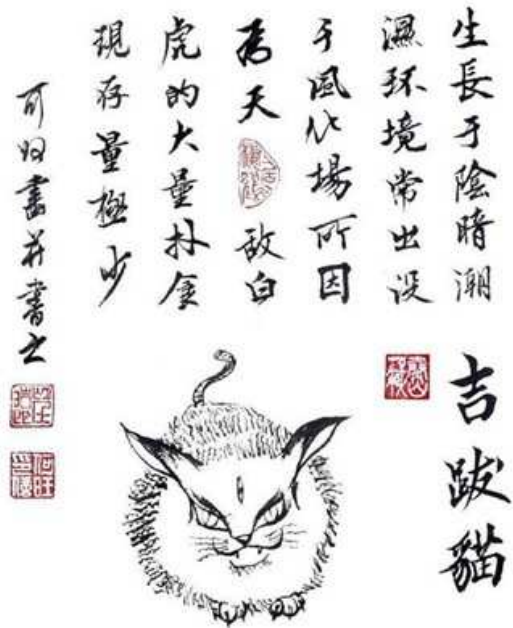 吉跋貓
生長于陰暗潮
濕环境常出没
于風化場所因
為天敌白
虎的大量扑食
現存量極少
畫并書之